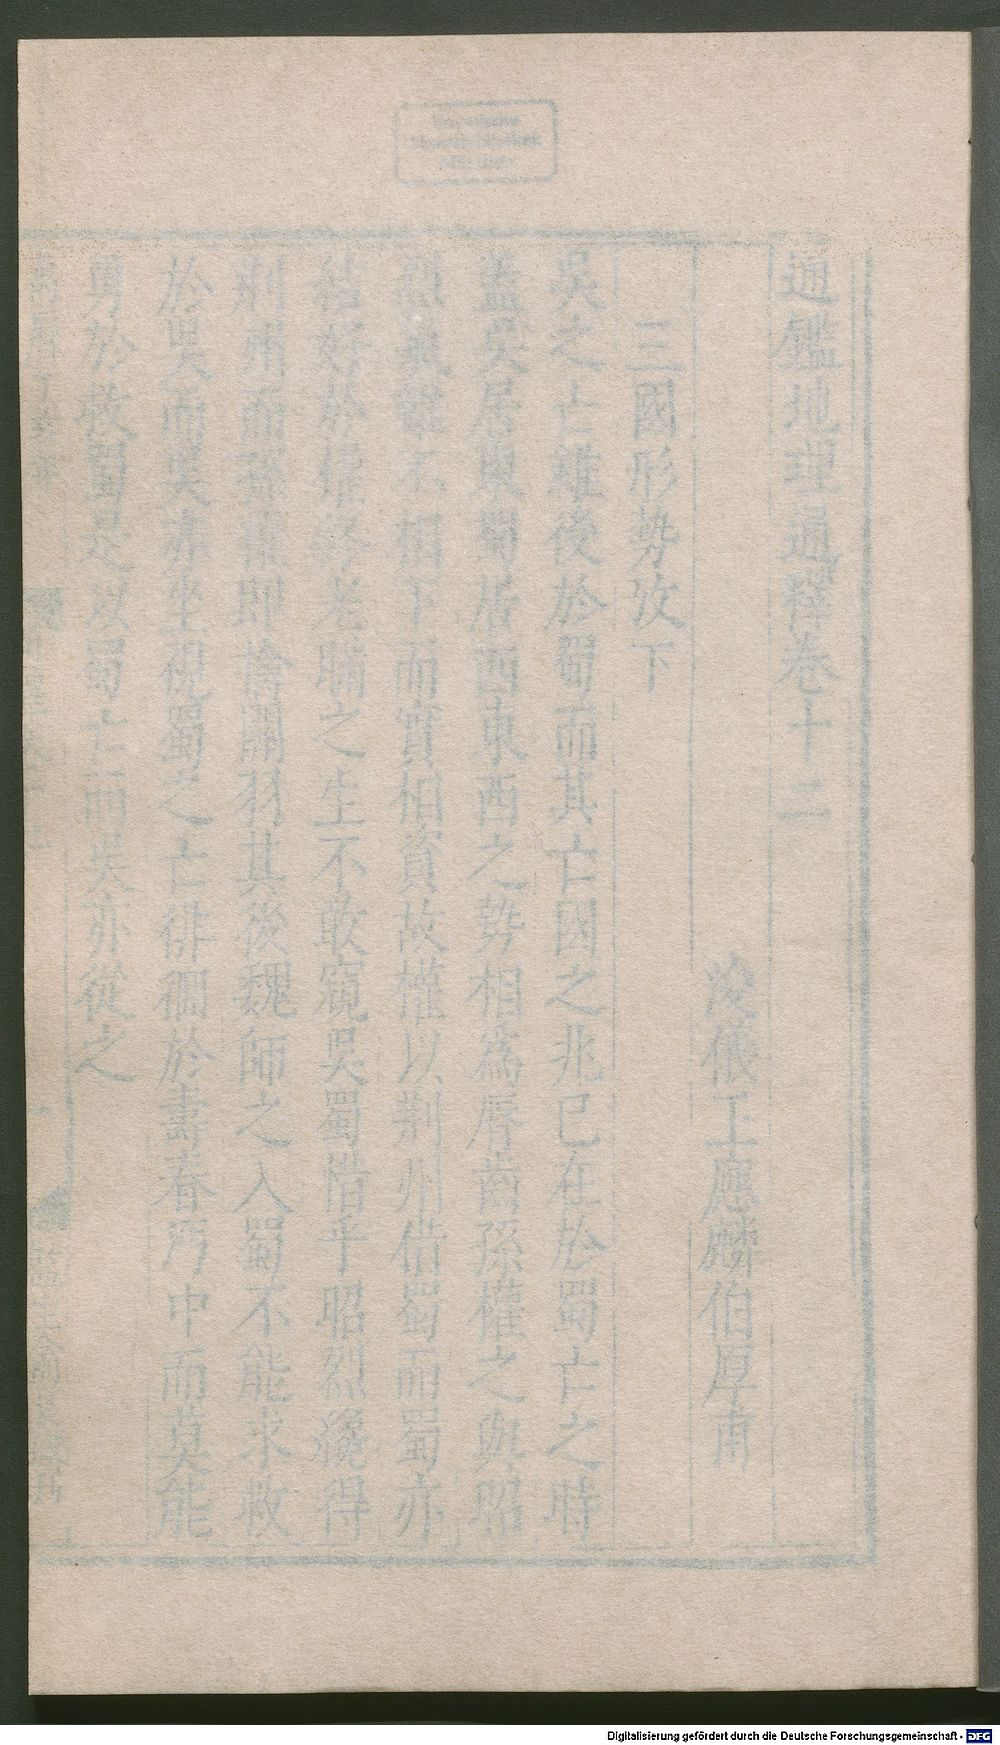 通鑑地理通釋卷十二
浚儀王應麟伯厚甫
三國形勢攷下
吳之亡雖後於蜀而其亡國之兆已在於蜀亡之時
蓋吳居東蜀居西東西之勢相爲脣齒孫權之與昭
烈氣雖不相下而實相資故權以荆州借蜀而蜀亦
結好於權終老瞞之生不敢窺吳蜀惜乎昭烈纔得
荆州而孫權即擒關羽其後魏師之入蜀不能求救
於吳而吳亦坐視蜀之亡徘徊於壽春沔中而莫能
勇於救蜀是以蜀亡而吳亦從之
Bayerische
Staatsbibliothek
München
Digitalisierung gefördert durch die Deutsche Forschungsgemeinschaft - DFG